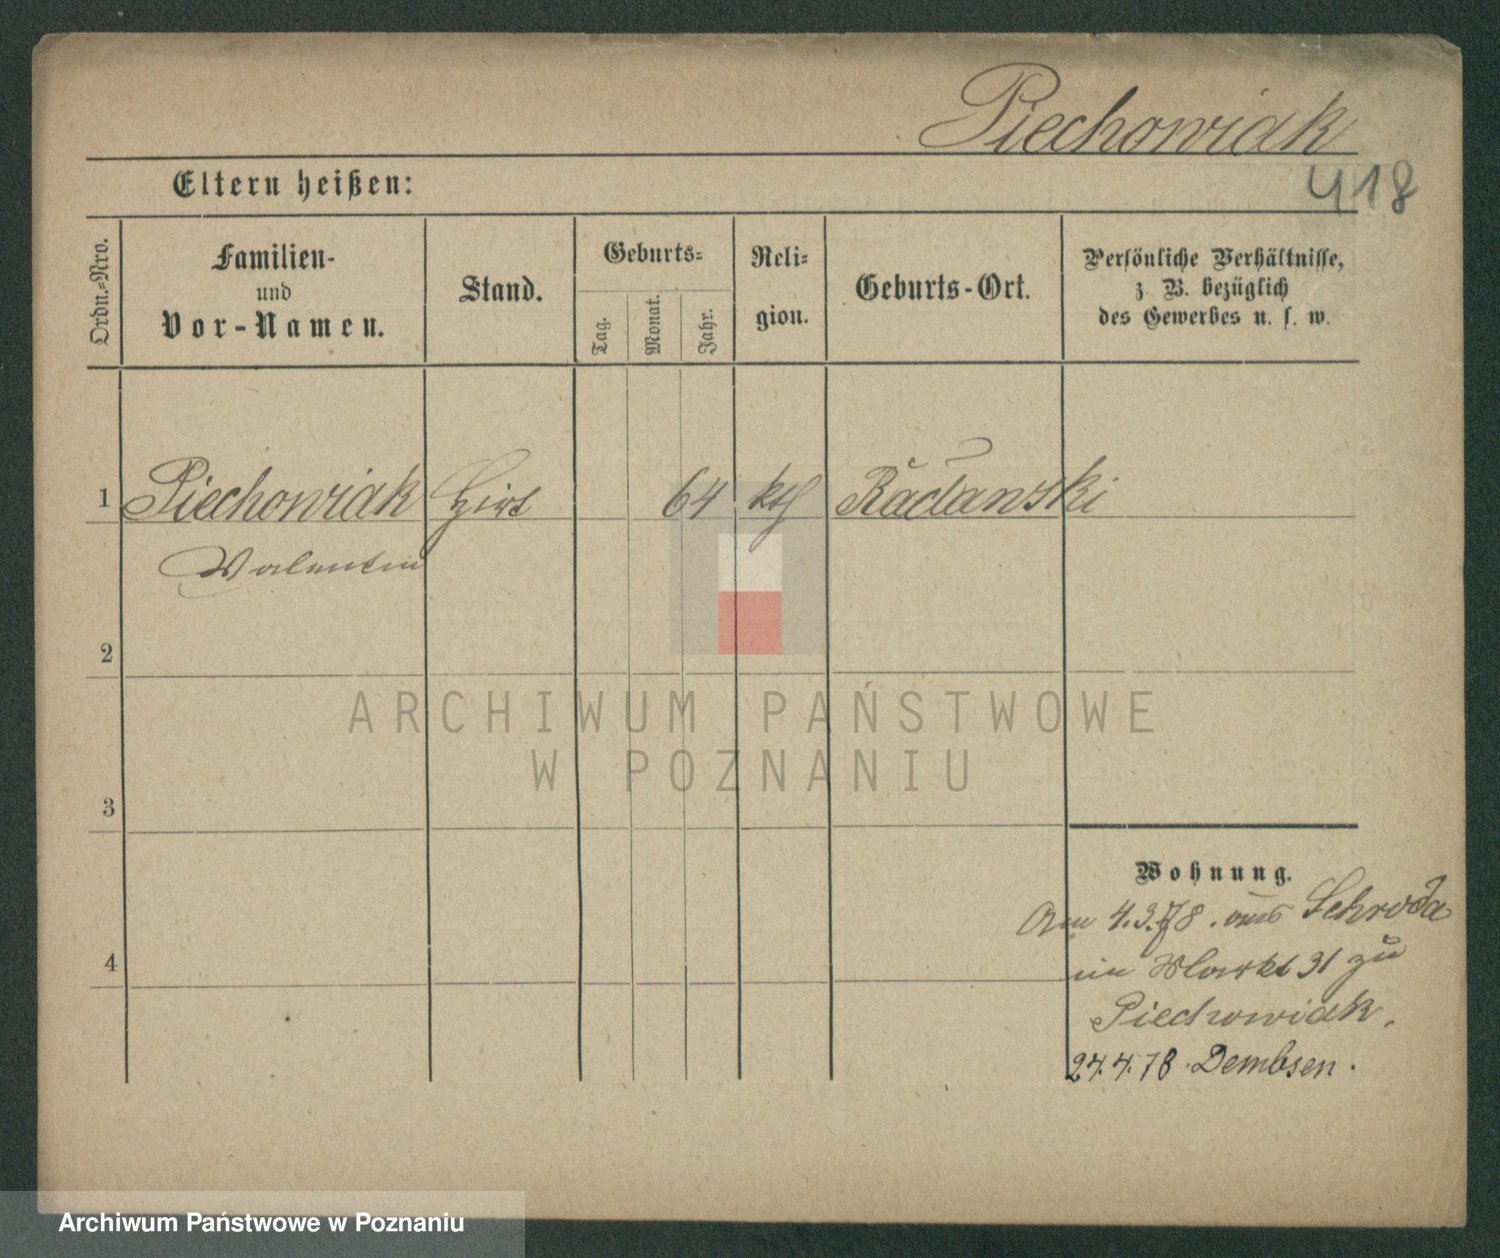 Piechowiak
418
Eltern heißen:
Ordn.-Nro.
Familien-
und
Vor-Namen.
Stand.
Geburts-
Tag.
Monat.
Jahr.
Reli-
gion.
Geburts-Ort.
Persönliche Verhältnisse,
z. B. bezüglich
des Gewerbes u. s. w.
1 Piechowiak 64 kth
Valentin
2
ARCHIWUM PAŃSTWOWE
W POZNANIU
3
Wohnung.
Am 4.3.78. aus Schroda
in Markt 31 zu
Piechowiak.
4
24.4.78 Dembsen.
Archiwum Państwowe w Poznaniu